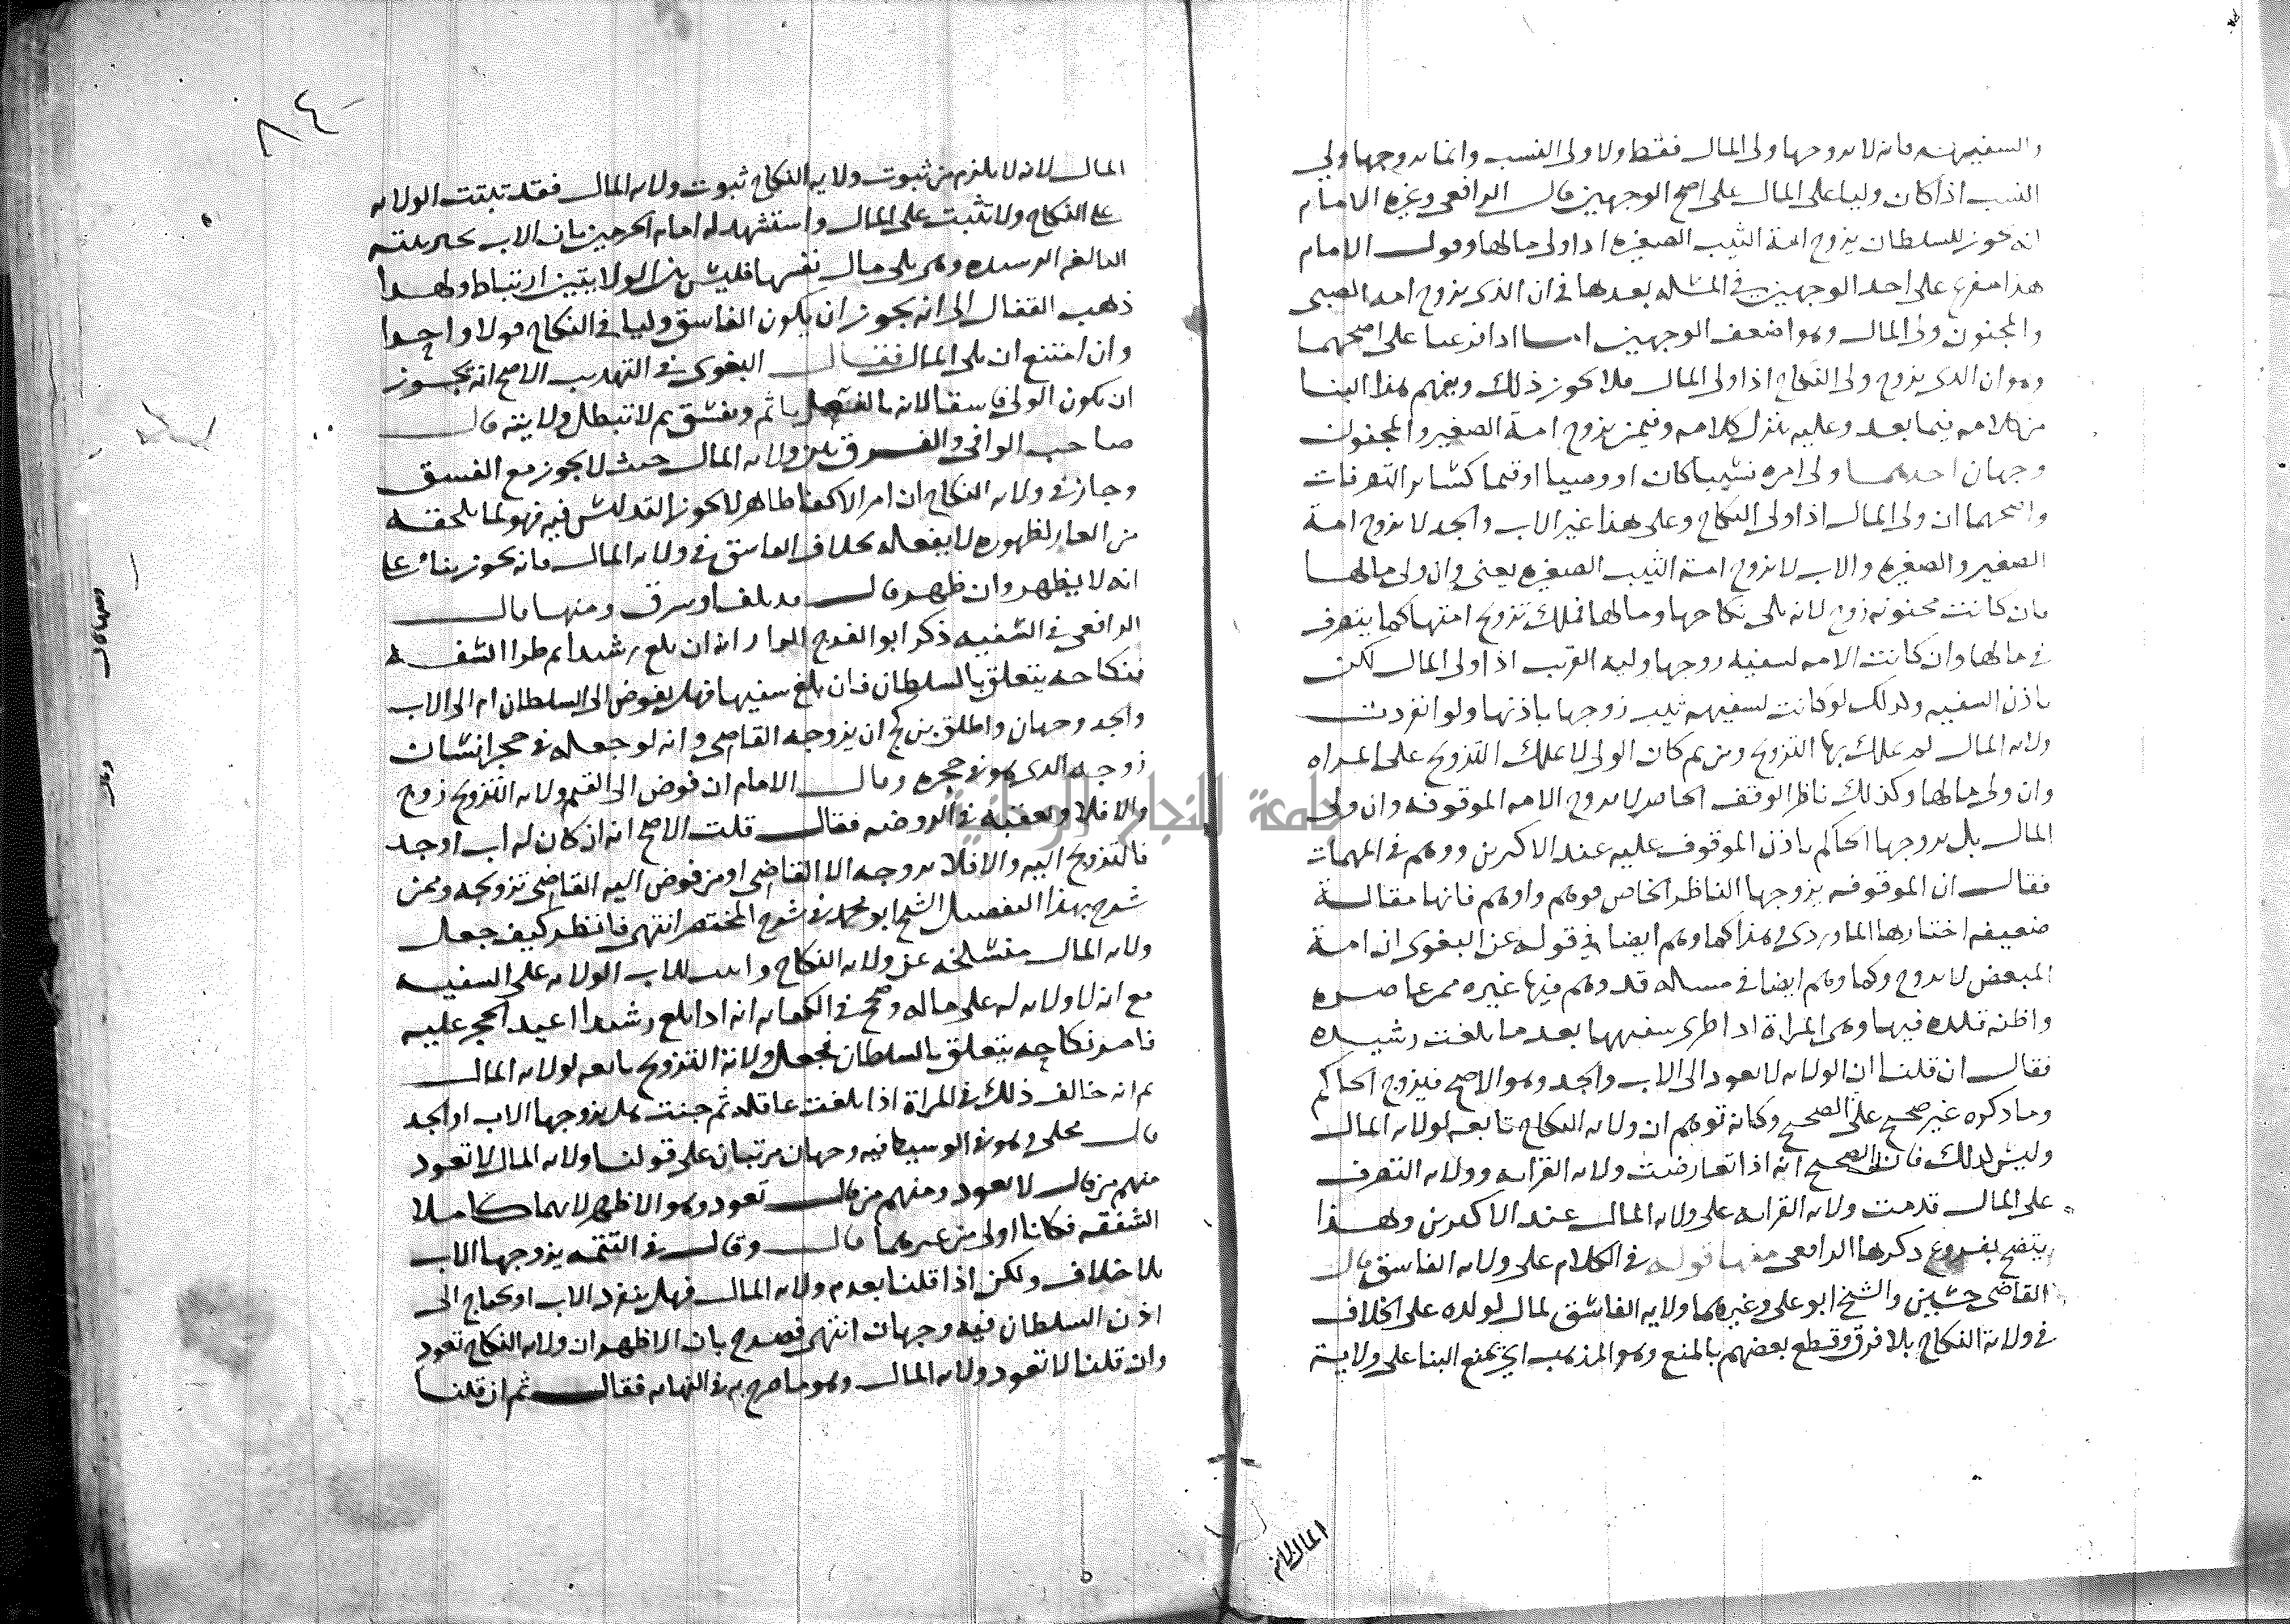 والسفيهة فانه لا يزوجها ولي المال فقط ولا ولي النسب وانما يزوجها ولي
النسب اذا كان وليا على المال على اصح الوجهين قال الرافعي وغيره الامام
انه يجوز للسلطان يزوج امة الثيب الصغيرة اذا ولي مالها وقول الامام
هذا مفرع على احد الوجهين في المسئلة بعدها في ان الذي يزوج امة الصبي
والمجنون ولي المال وهو اضعف الوجهين اما اذا فرعنا على اصحهما
وهو ان الذي يزوج ولي النكاح اذا ولي المال فلا يجوز ذلك ويفهم هذا البنا
من كلامه فيما بعد وعليه ينزل كلامه وفيمن يزوج امة الصغير والمجنون
وجهان احدهما ولي امره نسيبا كان او وصيا او قيما كسائر التصرفات
واصحهما ان ولي المال اذا ولي النكاح وعلى هذا غير الاب والجد لا يزوج امة
الصغير والصغيرة والاب لا يزوج امة الثيب الصغيرة يعني وان ولي مالها
فان كانت مجنونة زوج لانه يلي نكاحها ومالها فملك تزويج امتها كما يتصرف
في مالها وان كانت الامة لسفيه زوجها وليه القريب اذا ولي المال لكن
باذن السفيه وكذلك لو كانت لسفيهة ثيب زوجها باذنها ولو انفردت
ولاية المال لم يملك بها التزويج ومن ثم كان الولي لا يملك التزويج على المراه
وان ولي مالها وكذلك ناظر الوقف الخاص لا يزوج الامة الموقوفة وان ولي
المال بل يزوجها الحاكم باذن الموقوف عليه عند الاكثرين ووهم في المهمات
فقال ان الموقوفة يزوجها الناظر الخاص فوهم واوهم فانها مقالة
ضعيفة اختارها الماوردي هذا كما وهم ايضا في قوله عن البغوي ان امة
المبعض لا يزوج وكما وهم ايضا في مسالة قد وهم فيها غيره ممن عاصره
واظنه قلده فيها وهي المراة اذا طرى سفهها بعد ما بلغت رشيده
فقال ان قلنا ان الولاية لا تعود الى الاب والجد وهو الاصح فيزوج الحاكم
وما ذكروه غير صحيح على الصحيح وكانه توهم ان ولاية النكاح تابعة لولاية المال
وليس كذلك فان الصحيح انه اذا تعارضت ولاية القرابة وولاية التصرف
على المال قدمت ولاية القرابة على ولاية المال عند الاكثرين وهذا
يتضح بفروع ذكرها الرافعي منها قوله في الكلام على ولاية الفاسق قال
القاضي حسين والشيخ ابو علي وغيرهما ولاية الفاسق لمال لولده على الخلاف
في ولاية النكاح بلا فرق وقطع بعضهم بالمنع وهو المذهب اي يمنع البنا على ولاية
المال لانه
٨٤
المال لانه لا يلزم من ثبوت ولاية النكاح ثبوت ولاية المال فقد تثبت الولاية
على النكاح ولا تثبت على المال واستشهد له امام الحرمين بان الاب يجبر بنته
البالغة الرشيدة وهي تلي مال نفسها فليس بين الولايتين ارتباط ولهذا
ذهب القفال الى انه يجوز ان يكون الفاسق وليا في النكاح قولا واحدا
وان امتنع ان يلي المال فقال البغوي في التهذيب الاصح انه يجوز
ان يكون الولي فاسقا لانه بالعضل ياثم ويفسق ثم لا تبطل ولايته قال
صاحب الوافي والفرق بين ولاية المال حيث لا يجوز مع الفسق
وجاز في ولاية النكاح ان امر الاكفا ظاهر لا يجوز التدليس فيه فهو لما يلحقه
من العار لظهوره لا يفعله بخلاف الفاسق في ولاية المال فانه يجوز بناء على
انه لا يظهر وان ظهر قال قد تلف او سرق ومنها قال
الرافعي في السفيه ذكر ابو الفرج البزار انه ان بلغ رشيدا ثم طرا السفه
فنكاحه يتعلق بالسلطان فان بلغ سفيها فهل يفوض الى السلطان ام الى الاب
والجد وجهان واطلق بن كج ان يزوجه القاضي وانه لو جعله في حجر انسان
زوجه الذي هو في حجره وقال الامام ان فوض الى القيم ولاية التزويج زوج
والا فلا وتعقبه في الروضة فقال قلت الاصح انه ان كان له اب او جد
فالتزويج اليه والا فلا يزوجه الا القاضي او من فوض اليه القاضي تزويجه وممن
شرح بهذا التفصيل الشيخ ابو محمد في شرح المختصر انتهى فانظر كيف جعل
ولاية المال منسلخة عن ولاية النكاح واثبت للاب الولاية على السفيه
مع انه لا ولاية له على ماله وصحح في الكفاية انه اذا بلغ رشيدا اعيد الحجر عليه
فامر نكاحه يتعلق بالسلطان فجعل ولاية التزويج تابعة لولاية المال
ثم انه خالف ذلك في المراة اذا بلغت عاقلة ثم جنت هل يزوجها الاب او الجد
قال مجلي وهو في الوسيط فيه وجهان مرتبان على قولنا ولاية المال لا تعود
منهم من قال لا تعود ومنهم من قال تعود وهو الاظهر لانهما كاملا
الشفقة فكانا اولى من غيرهما قال وقال في التتمة يزوجها الاب
بلا خلاف ولكن اذا قلنا بعدم ولاية المال فهل ينفرد الاب او يحتاج الى
اذن السلطان فيه وجهان انتهى فصرح بان الاظهر ان ولاية النكاح تعود
وان قلنا لا تعود ولاية المال وهو ما صرح به في النهاية فقال ثم ان قلنا
جامعة النجاح الوطنية